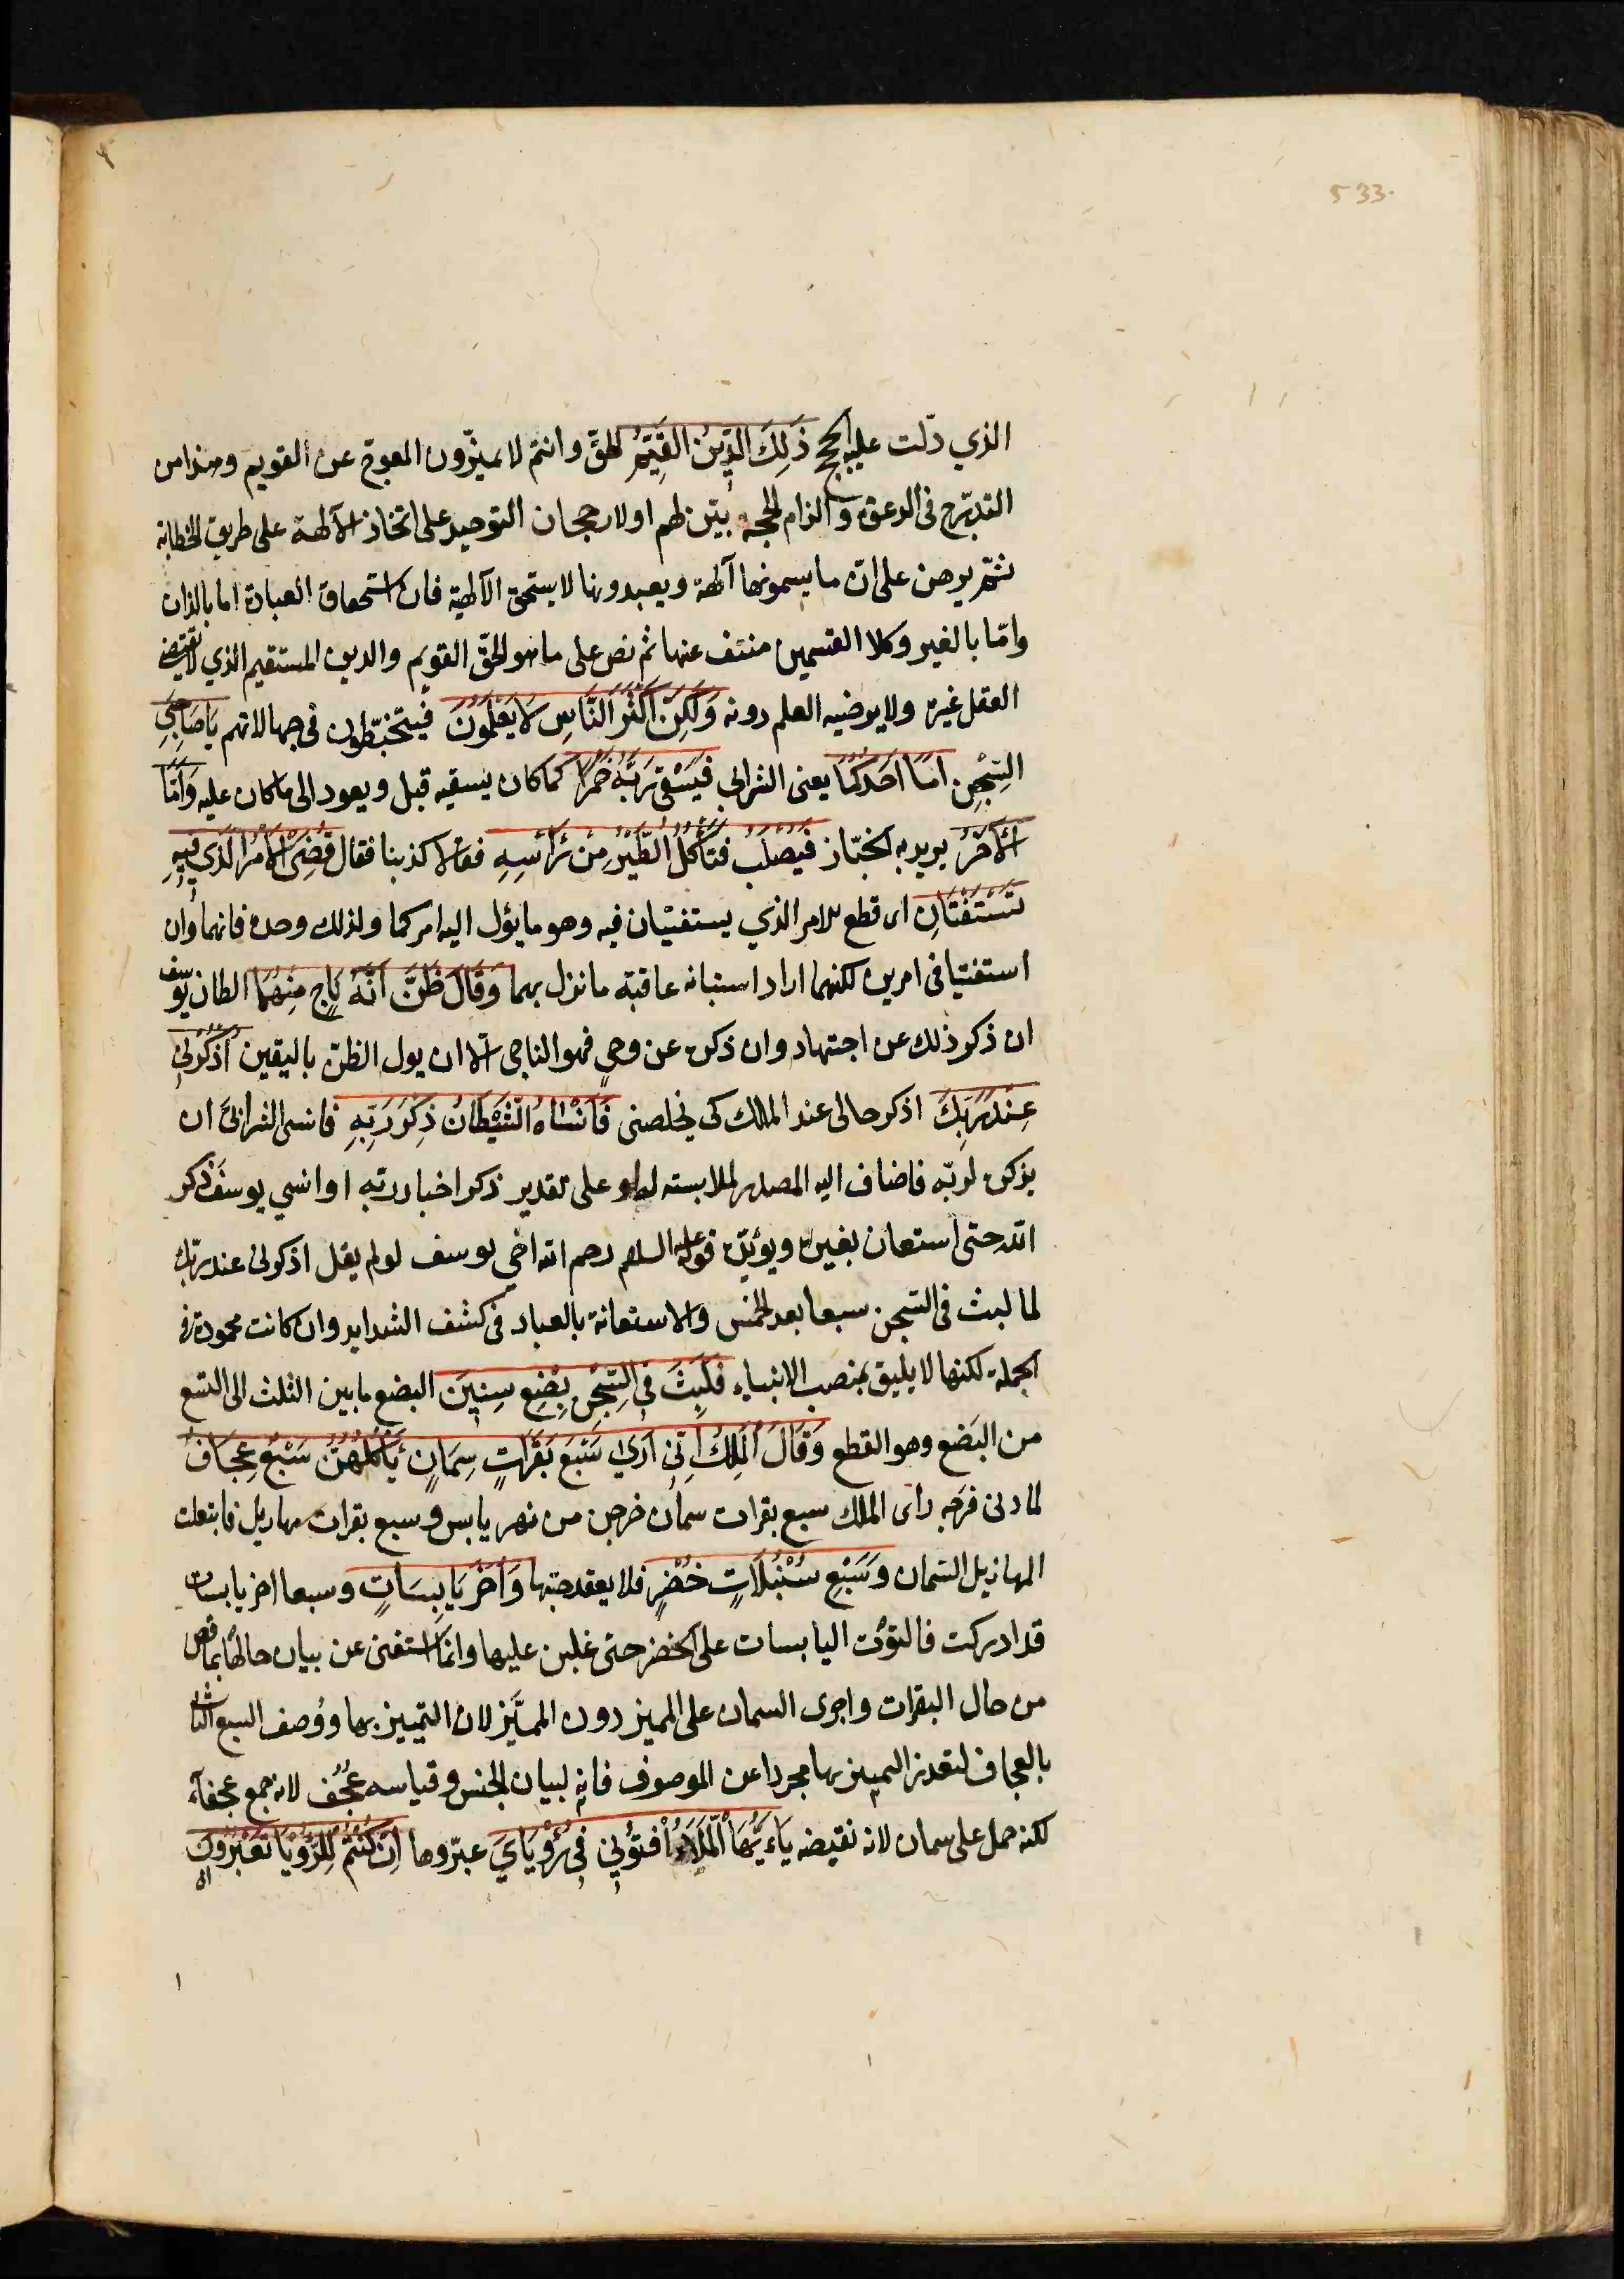 533
الذي دلّت عليه الحجج ذَلِكَ الدِّينُ القَيِّمُ الحقّ وانتم لا تميزّون المعوجّ عن القويم وهذا من
التدرّج في الدعوة والزام الحجة بيّن لهم اولا رجحان التوحيد على اتخاذ الآلهة على طريق الخطابة
ثمّ برهن على انّ ما يسمونها آلهة ويعبدونها لا يستحق الآلهية فان استحقاق العبادة اما بالذات
وامّا بالغير وكلا القسمين منتف عنها ثم نص على ما هو الحقّ القويم والدين المستقيم الذي لا يقتضي
العقل غيره ولا يرضيه العلم دونه وَلَكِنَّ اَكْثَرَ النَّاسِ لَا يَعْلَمُونَ فيتخبّطون في جهالاتهم يَا صَاحِبَيِ
السِّجْنِ اَمَّا اَحَدُكُمَا يعنى الشرابي فَيَسْقِي رَبَّهُ خَمْرًا كما كان يسقيه قبل ويعود الى ما كان عليه وَاَمَّا
الْآخَرُ يريد به الخبّاز فَيُصْلَبُ فَتَأْكُلُ الطَّيْرُ مِنْ رَأْسِهِ فقالا كذبنا فقال قُضِيَ الْاَمْرُ الَّذِي فِيهِ
تَسْتَفْتِيَانِ اى قطع الامر الذي يستفتيان فيه وهو ما يؤل اليه امركما ولذلك وحده فانهما وان
استفتيا في امرين لكنهما اراد استبانة عاقبة ما نزل بهما وَقَالَ ظَنَّ اَنَّهُ نَاجٍ مِنْهُمَا الظان يوسف
ان ذكر ذلك عن اجتهاد وان ذكره عن وحي فهو الناجي الّا ان يول الظنّ باليقين اُذْكُرْنِي
عِنْدَ رَبِّكَ اذكر حالى عند الملك كى يخلصنى فَاَنْسَاهُ الشَّيْطَانُ ذِكْرَ رَبِّهِ فانسى الشرابيَّ ان
يذكره لربّه فاضاف اليه المصدر لملابسته له او على تقدير ذكر اخبار ربّه او انسي يوسفَ ذكر
الله حتى استعان بغيره ويؤيّده قوله عليه السلم رحم الله اخي يوسف لو لم يقل اذكرني عند ربّك
لما لبث في السّجن سبعا بعد الخمس والاستعانة بالعباد في كشف الشدايد وان كانت محمودة في
الجملة لكنها لا يليق بمنصب الانبياء فَلَبِثَ فِي السِّجْنِ بِضْعَ سِنِينَ البضع ما بين الثلث الى التسع
من البَضع وهو القطع وَقَالَ الْمَلِكُ اِنِّي اَرَى سَبْعَ بَقَرَاتٍ سِمَانٍ يَأْكُلُهُنَّ سَبْعٌ عِجَافٌ
لما دنى فرَجه راى الملك سبع بقرات سمان خرجن من نهر يابس وسبع بقرات مهازيل فابتعلت
المهازيل السّمان وَسَبْعَ سُنْبُلَاتٍ خُضْرٍ فلا يعقد حبّها وَاُخَرَ يَابِسَاتٍ وسبعا اخر يابسات
قد ادركت فالتوَت اليابسات على الخضر حتى غلبن عليها وانما استغنى عن بيان حالها بما قص
من حال البقرات واجرى السمان على المميز دون المميَّز لان التمييز بها ووُصف السبع الثاني
بالعجاف لتعذر التمييز بها مجردا عن الموصوف فانه لبيان الجنس وقياسه عُجُف لانه جمع عجفآء
لكنه حمل على سمان لانه نقيضه يَاءَيُّهَا الْمَلَأُ اَفْتُونِي فِي رُؤْيَايَ عبّروها اِنْ كُنْتُمْ لِلرُّؤْيَا تَعْبُرُونَ